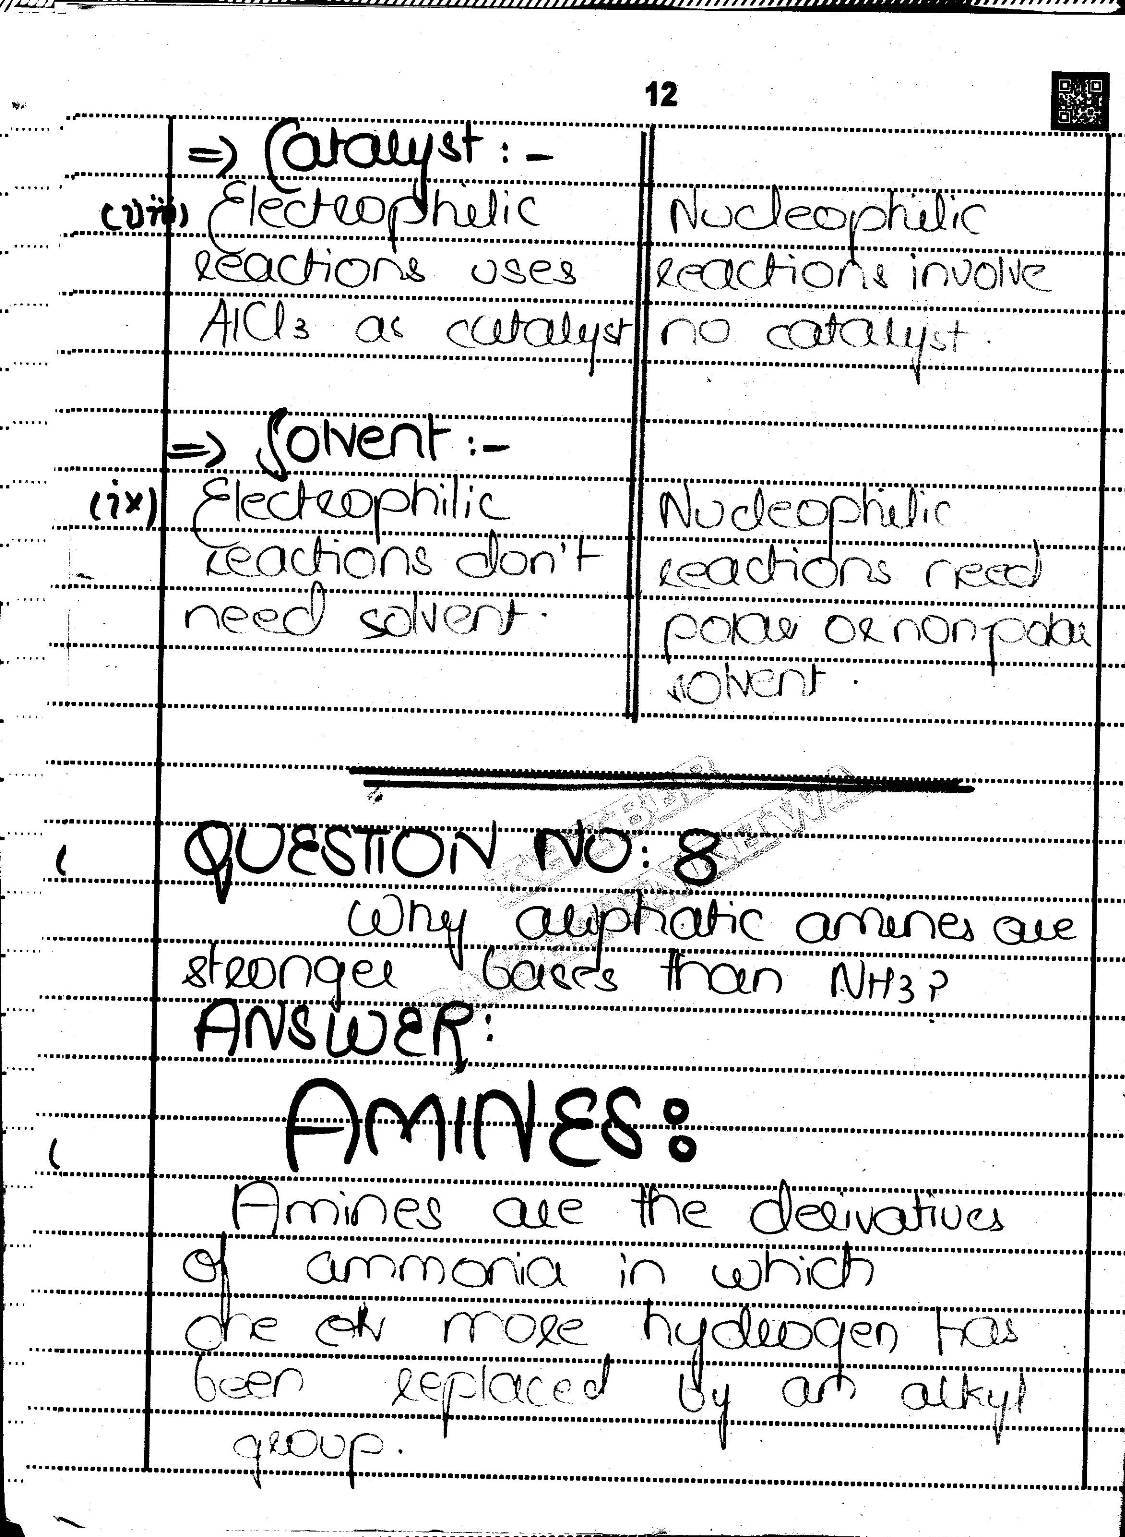 12
=> Catalyst :-
(viii) Electrophilic
reactions uses
AlCl3 as catalyst
Nucleophilic
reactions involve
no catalyst.
=> Solvent :-
(ix) Electrophilic
reactions don't
need solvent.
Nucleophilic
reactions need
polar or nonpolar
solvent.
QUESTION NO: 8
Why aliphatic amines are
stronger bases than NH3?
ANSWER:
AMINES:
Amines are the derivatives
of ammonia in which
one or more hydrogen has
been replaced by an alkyl
group.